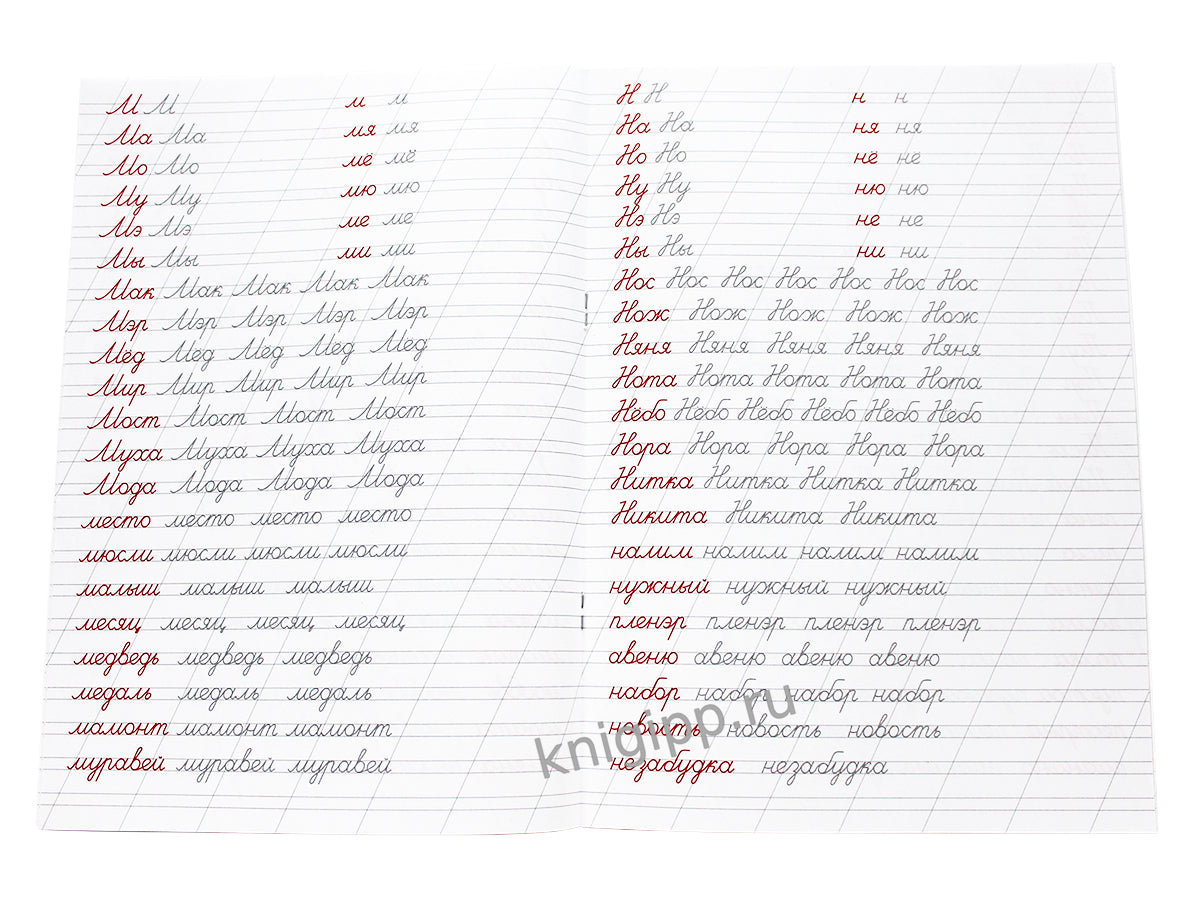 М М м м
Ма Ма мя мя
Мо Мо мё мё
Му Му мю мю
Мэ Мэ ме ме
Мы Мы ми ми
Мак Мак Мак Мак Мак
Мэр Мэр Мэр Мэр Мэр
Мёд Мёд Мёд Мёд Мёд
Мир Мир Мир Мир Мир
Мост Мост Мост Мост
Муха Муха Муха Муха
Мода Мода Мода Мода
место место место место
мюсли мюсли мюсли мюсли
малыш малыш малыш
месяц месяц месяц месяц
медведь медведь медведь
медаль медаль медаль
мамонт мамонт мамонт
муравей муравей муравей
Н Н н н
На На ня ня
Но Но нё нё
Ну Ну ню ню
Нэ Нэ не не
Ны Ны ни ни
Нос Нос Нос Нос Нос Нос Нос
Нож Нож Нож Нож Нож
Няня Няня Няня Няня Няня
Нота Нота Нота Нота Нота
Нёбо Нёбо Нёбо Нёбо Нёбо Нёбо
Нора Нора Нора Нора Нора
Нитка Нитка Нитка Нитка
Никита Никита Никита
налим налим налим налим
нужный нужный нужный
пленэр пленэр пленэр пленэр
авеню авеню авеню авеню
набор набор набор набор
новость новость новость
незабудка незабудка
knigipp.ru